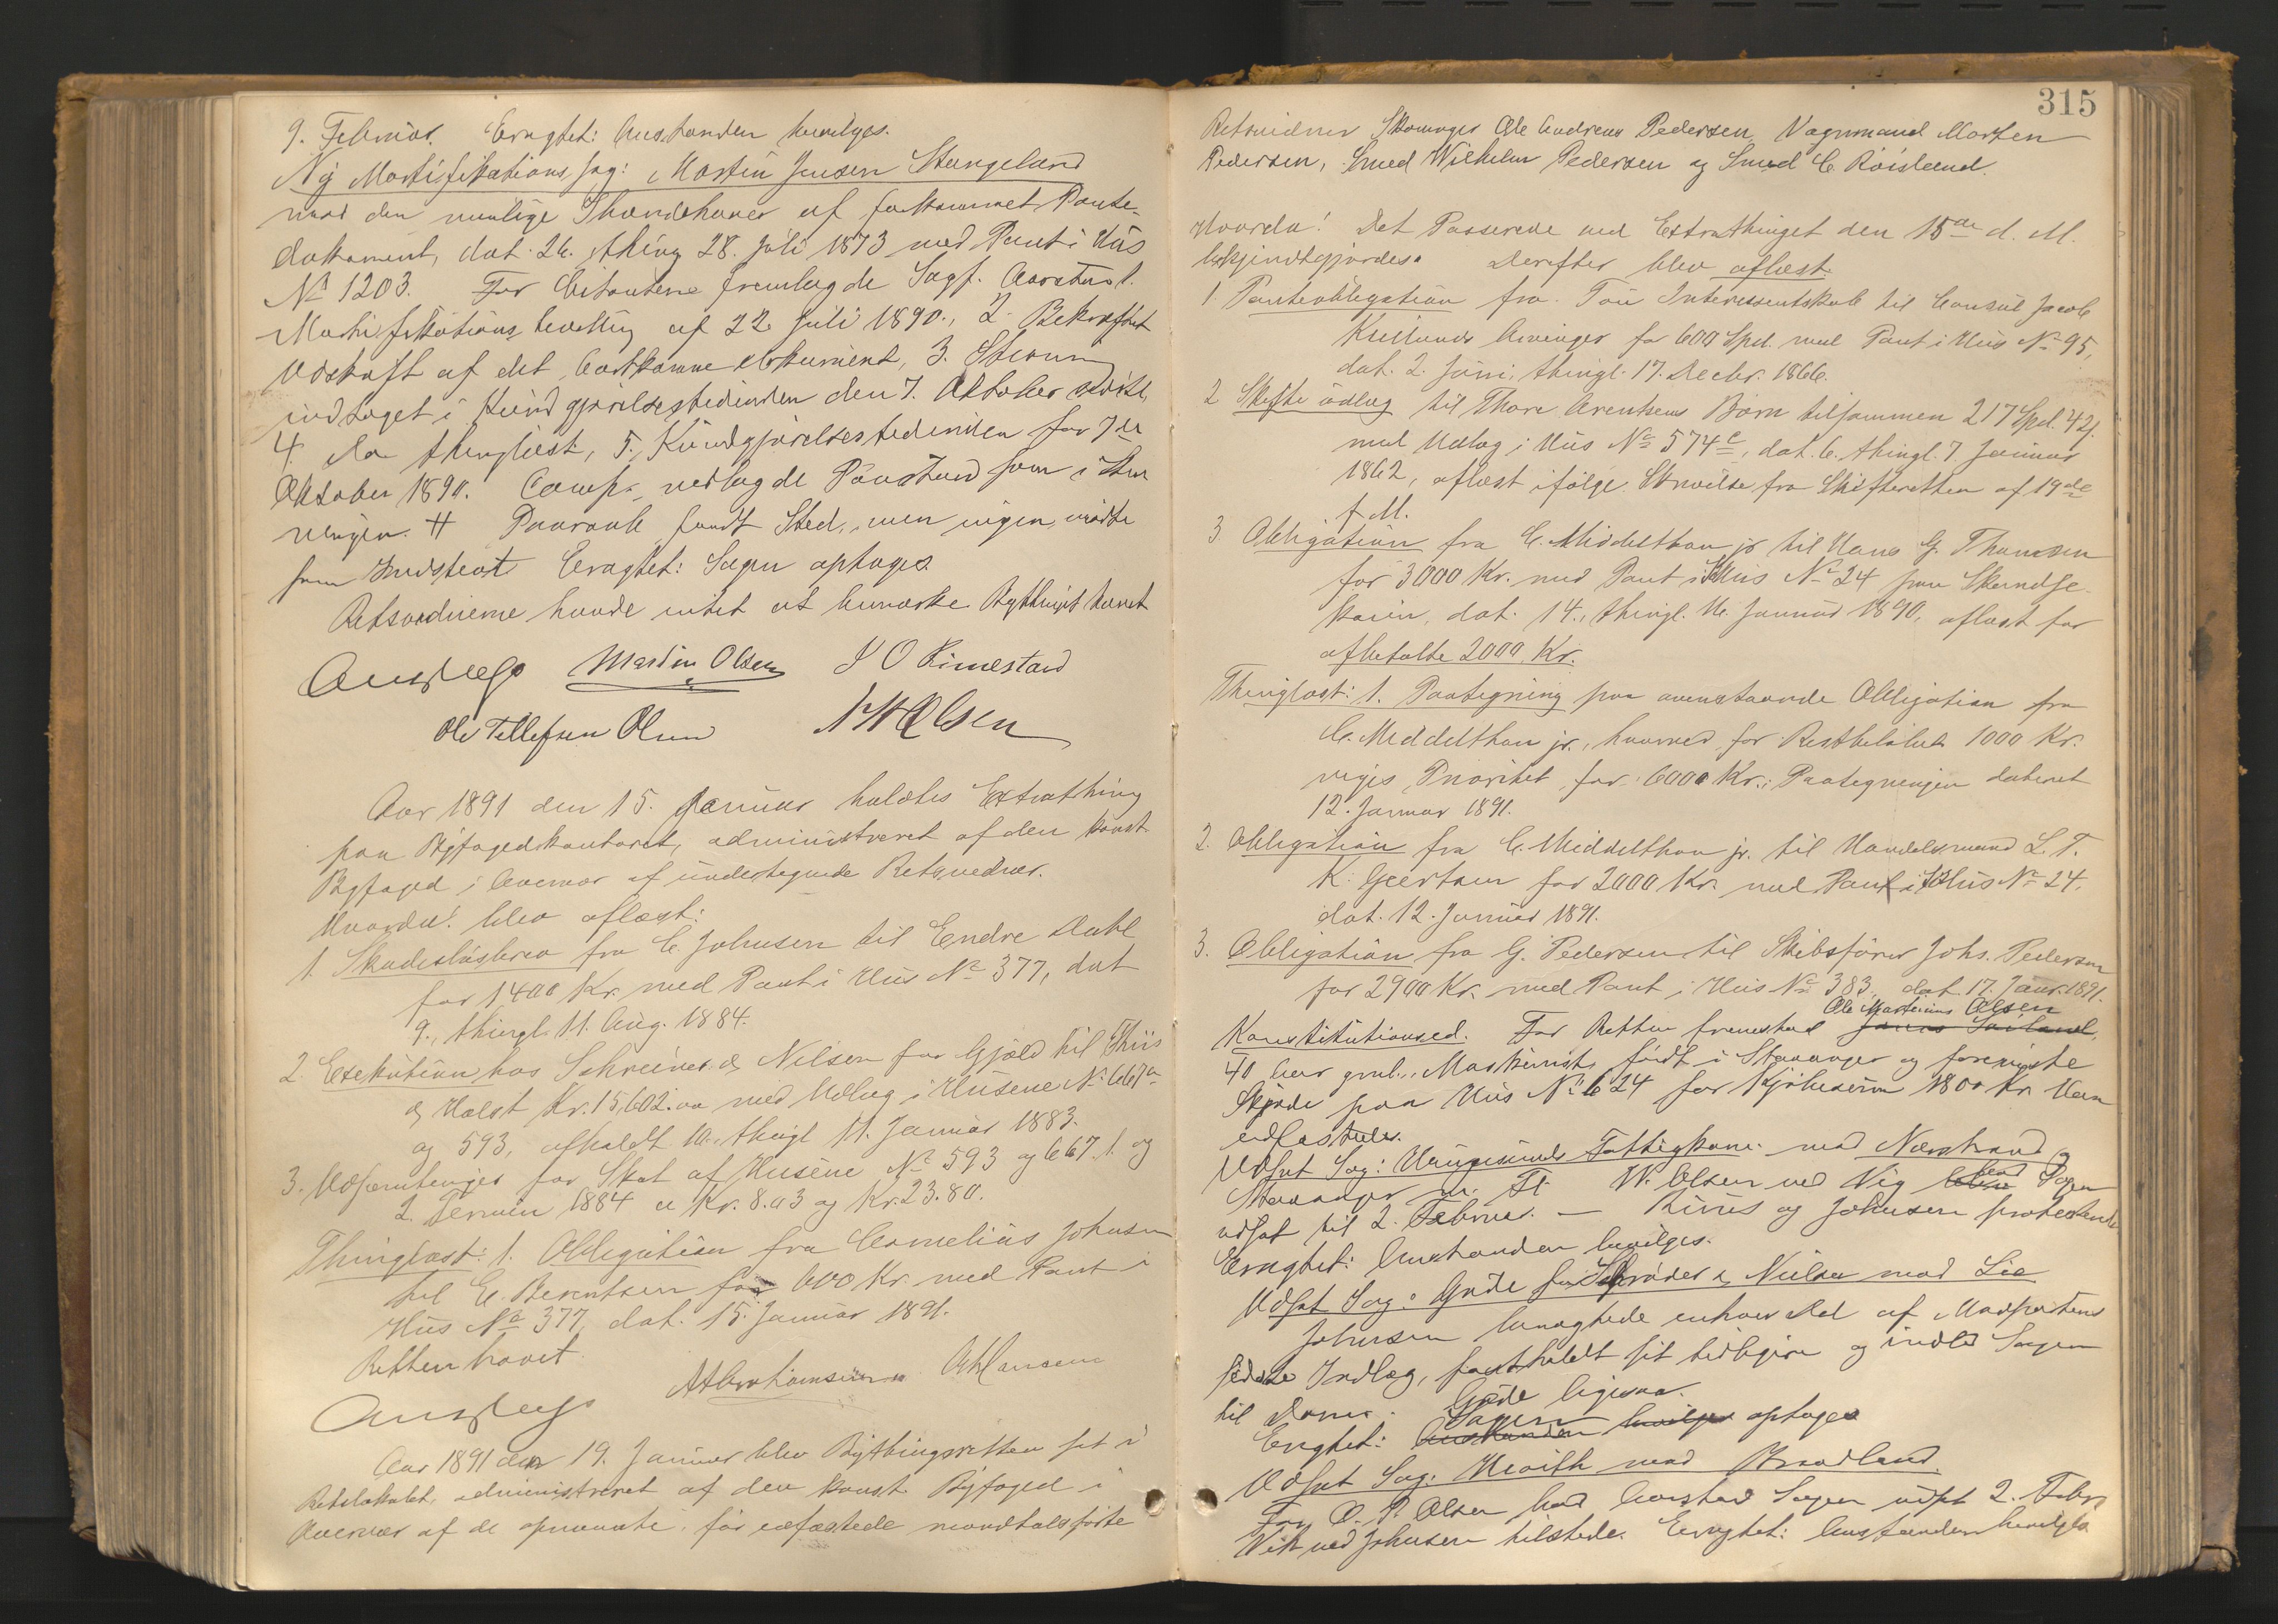 9. Februar. Eragtet: Anstanden bevilges.
Ny Mortifikations Sag: Martin Jensen Stangeland
mod den mulige Ihændehaver af forkommet Pante-
dokument, dat. 26. thing 28. Juli 1873 med Pant i Hus
No 1203. For Citanterne fremlagde Sagf. Aarstad 1.
Mortifikations bevilling af 22 Juli 1890., 2. Bekræftet
Udskrift af det bortkomne Dokument, 3. Stevning
indtaget i Kundgjørelsestidenden den 7. Oktober
4. thinglæst, 5. Kundgjørelsestidenden for 7de
Oktober 1890. Comp. nedlagde Paastand som i Stev
ningen. Paaraab fandt Sted, men ingen mødte
som Indstevnt Eragtet: Sagen optages.
Retsvidnerne havde intet at bemærke Bythinget hævet
Martin Olsen I O Rimestad
Ole Tellefsen Olsen Olsen
Aar 1891 den 15. Januar holdtes Extrathing
paa Byfogedkontoret, administreret af den konst.
Byfoged i Overvær af undertegnede Retsvidner.
Hvorda! blev aflæst:
1. Skadesløsbrev fra C. Johnsen til Endre Dahl
for 1400 Kr. med Pant i Hus No 377, dat
9., thingl. 11. Aug. 1884.
2. Exekution hos Schreiner & Nilsen for Gjæld til Thiis
& Holst Kr. 15,602.00 med Udlæg i Husene No 667a
og 593, afholdt 10. thingl 11. Januar 1883.
3. Udpantninger for Skat af Husene No 593 og 667. 1. og
2. Termin 1884 a Kr. 8.03 og Kr. 23.80.
Thinglæst: 1. Obligation fra Cornelius Johnsen
til E. Berentsen for 600 Kr. med Pant i
Hus No 377, dat. 15. Januar 1891.
Retten hævet.
Abrahamsen Hansen
Aar 1891 den 19. Januar blev Bythingsretten sat i
Retslokalet, administreret af den konst. Byfoged i
Overvær af de opnævnte, før edfæstede mandtalsførte
315
Retsvidner Skomager Ole Andreas Pedersen, Vognmand Morten
Pedersen, Smed Wilhelm Pedersen og Smed C. Røisland.
Hvorda! Det Passerede ved Extrathinget den 15de d. M.
bekjendtgjordes. Derefter blev aflæst.
1. Panteobligation fra Tou Interessentskab til Consul Jacob
Kiellands Arvinger for 600 Spd. med Pant i Hus No 95,
dat. 2. Juni, thingl. 17. Decbr. 1866.
2 Skifteudlæg til Thore Arentsens Børn tilsammen 217 Spd. 42
med Udlæg i Hus No 574c, dat. 6. thingl. 7. Januar
1862, aflæst ifølge Skrivelse fra Skifteretten af 19de
f. M.
3. Obligation fra C. Middelthon jr til Hans G. Thomsen
for 3000 Kr. med Pant i Hus No 24 paa
dat. 14., thingl. 16. Januar 1890, aflæst for
afbetalte 2000 Kr.
Thinglæst: 1. Paategning paa ovenstaaende Obligation fra
C. Middelthon jr., hvorved for Restbeløbet 1000 Kr.
viges Prioritet for 6000 Kr.: Paategningen dateret
12. Januar 1891.
2. Obligation fra C. Middelthon jr. til Handelsmand L. T.
K. Geertsen for 2000 Kr. med Pant i Hus No 24.
dat. 12. Januar 1891.
3. Obligation fra G. Pedersen til Skibsfører Johs. Pedersen
for 2900 Kr. med Pant i Hus No 383, dat. 17. Januar 1891.
Ole Martinius Olsen
Konstitutionsed. For Retten fremstod
40 Aar gml., Maskinist, født i Stavanger og foreviste
Skjøde paa Hus No 624 for Kjøbesum 1800 Kr. Han
edfæstedes.
Udsat Sag: Haugesunds Fattigkom. mod Nærstrand &
Stavanger W. Olsen ved Vig Sagen
udsat til 2. Februar. — Riiis og Johnsen protesterede
Eragtet: Anstanden bevilges.
Udsat Sag: Gøde for Schrøder & Nielsen mod Lie
Johnsen benegtede enhver Del af Modpartens
sidste Indlæg, fastholdt sit tidligere og indlod Sagen
til Doms. Gøde ligesaa.
Eragtet: Sagen optages
Udsat Sag: mod
For O. P. Olsen bad Aarstad Sagen udsat 2. Febr
ved Johnsen tilstede. Eragtet: Anstanden bevilges